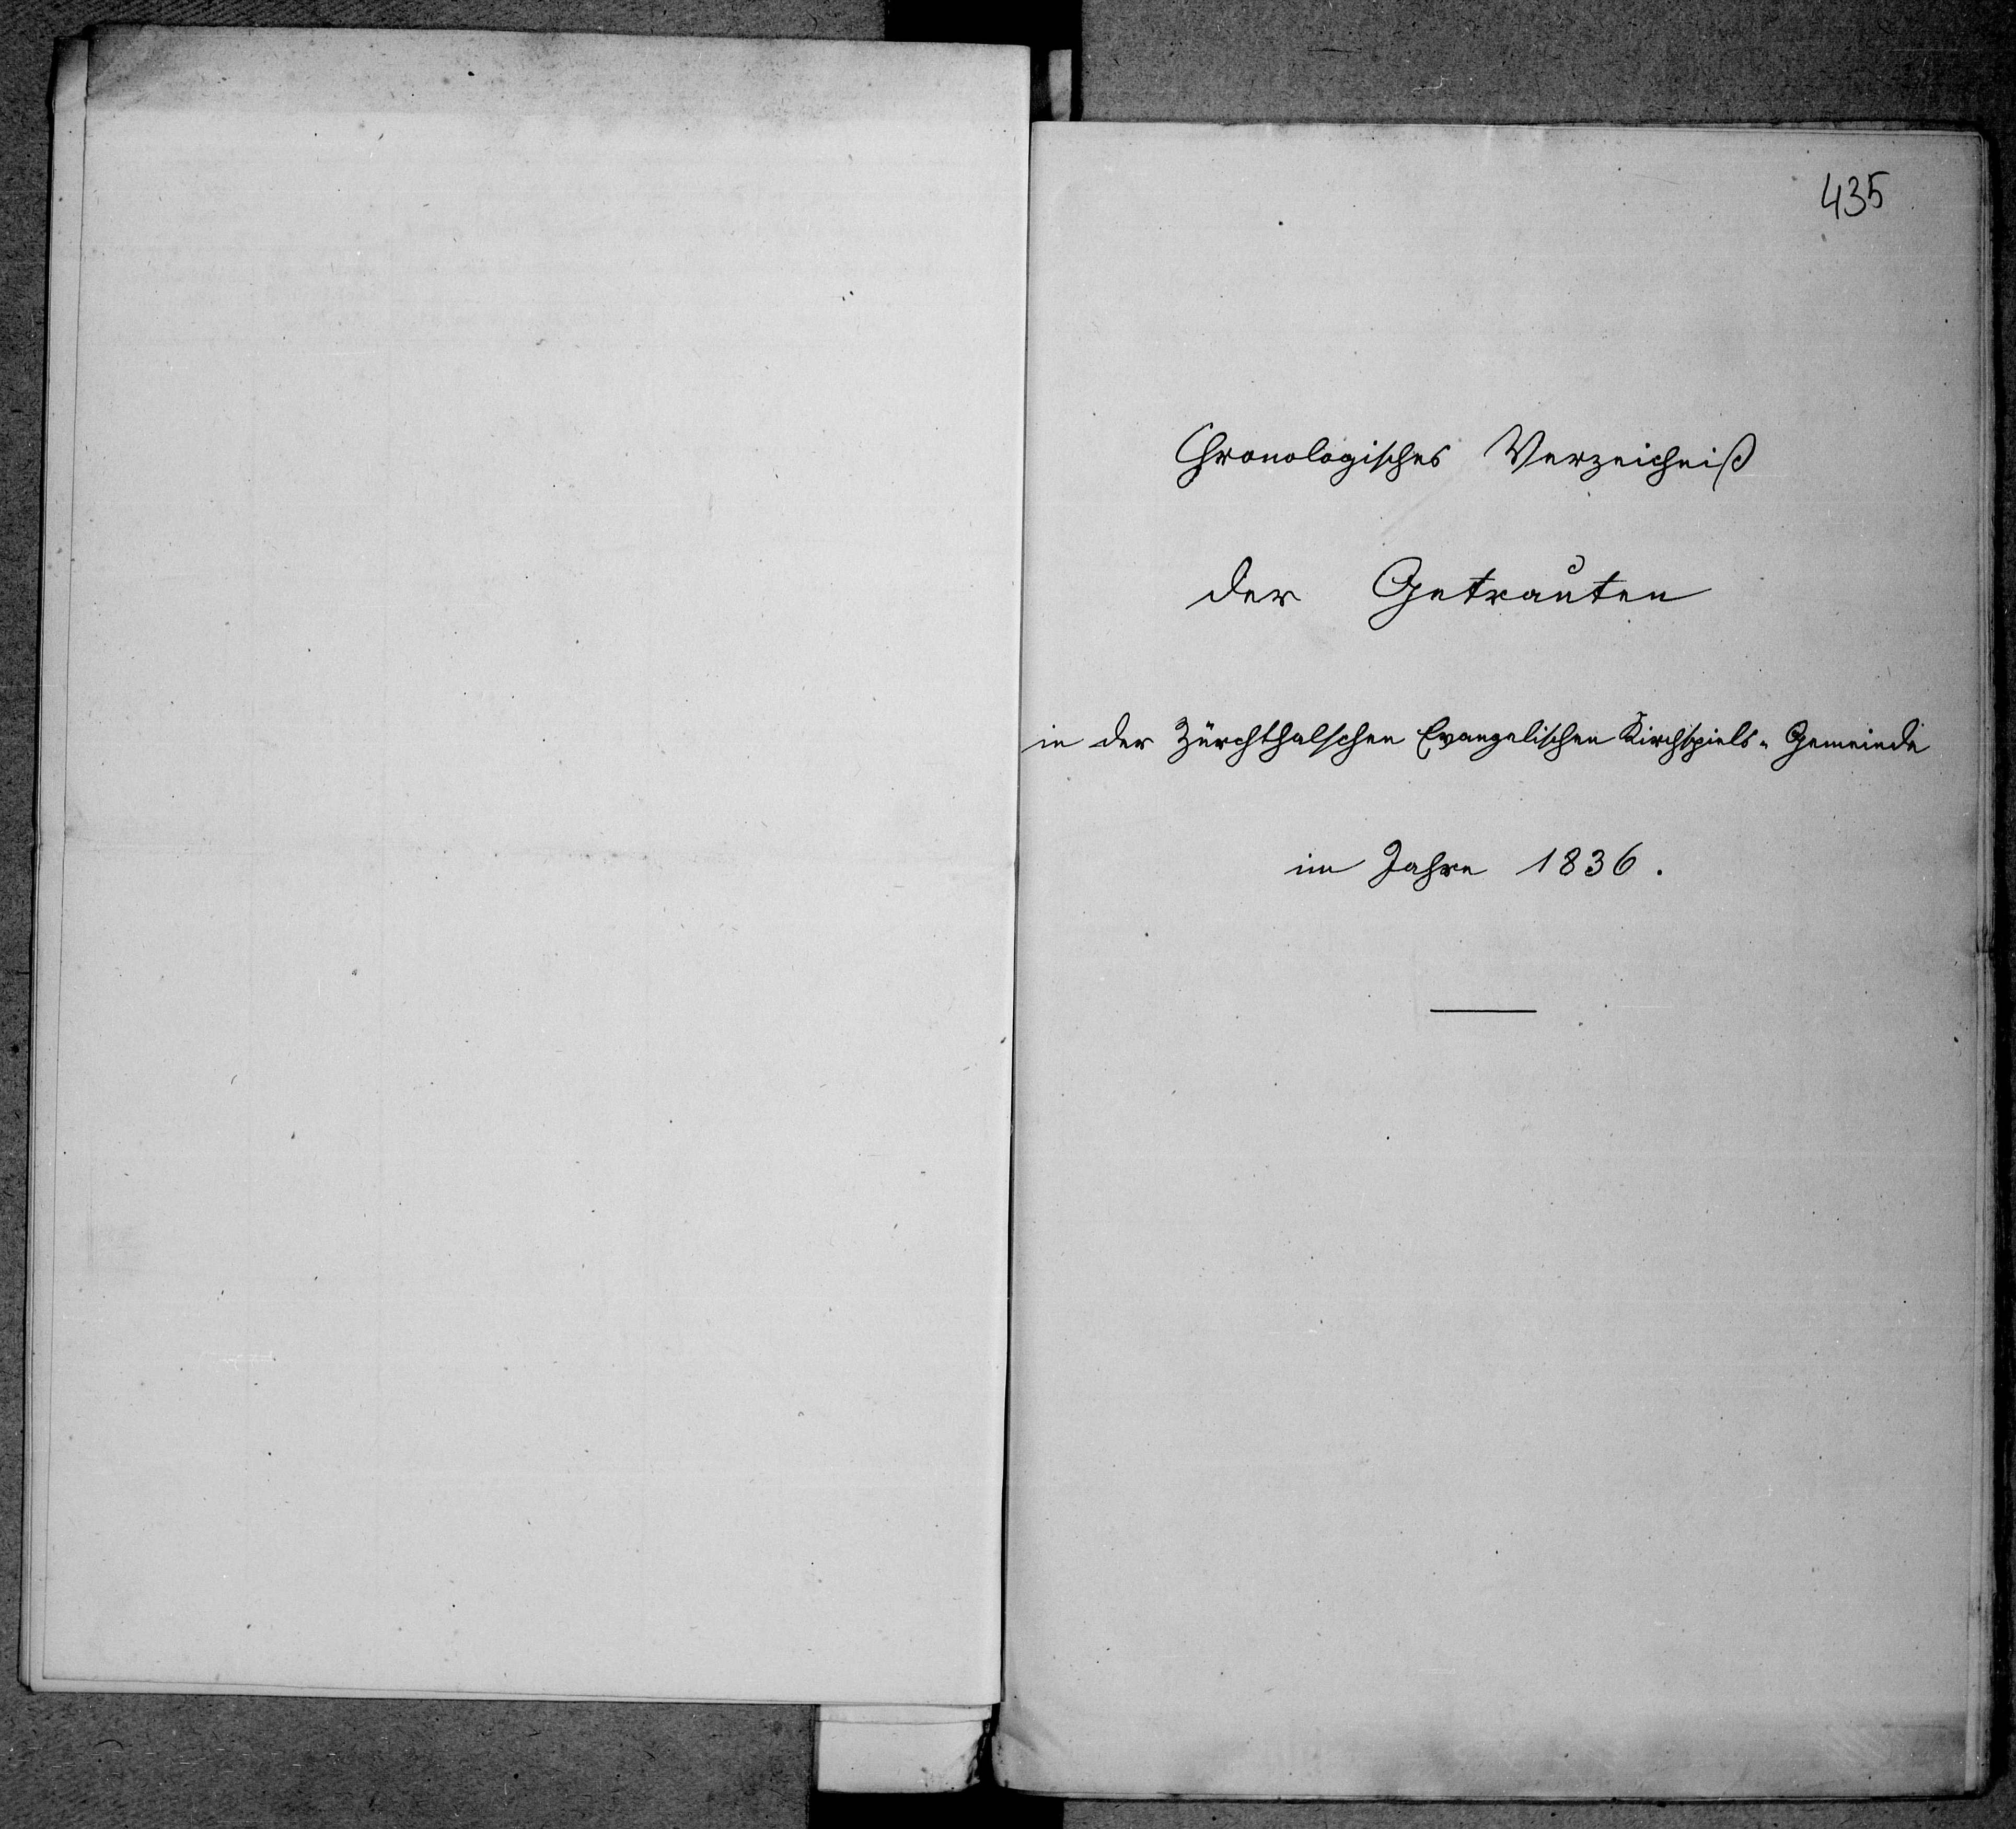 435
Chronologisches Verzeichniß
der Getrauten
in der Zürchthalschen Evangelischen Kirchspiels-Gemeinde
im Jahre 1836.